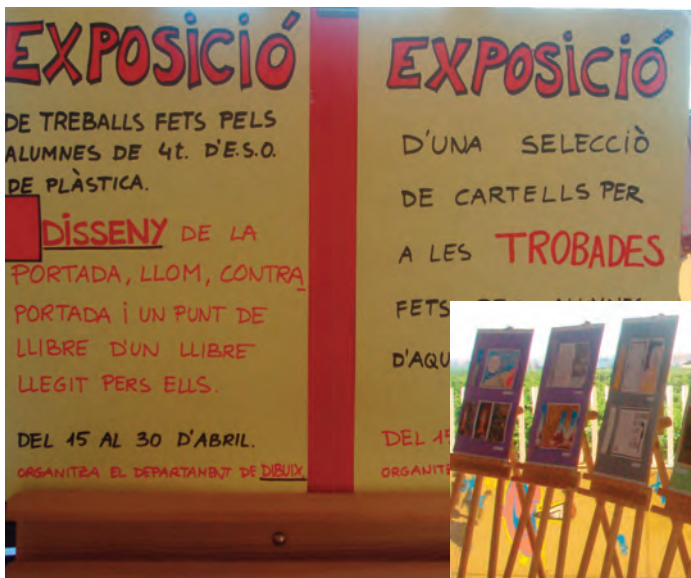 EXPOSICIÓ
DE TREBALLS FETS PELS
ALUMNES DE 4t. D'E.S.O.
DE PLÀSTICA.
DISSENY DE LA
PORTADA, LLOM, CONTRA
PORTADA i UN PUNT DE
LLIBRE D'UN LLIBRE
LLEGIT PERS ELLS.
DEL 15 AL 30 D'ABRIL.
ORGANITZA EL DEPARTAMENT DE DIBUIX.
EXPOSICIÓ
D'UNA SELECCIÒ
DE CARTELLS PER
A LES TROBADES
FETS
D'AQU
DEL 1
ORGANIT